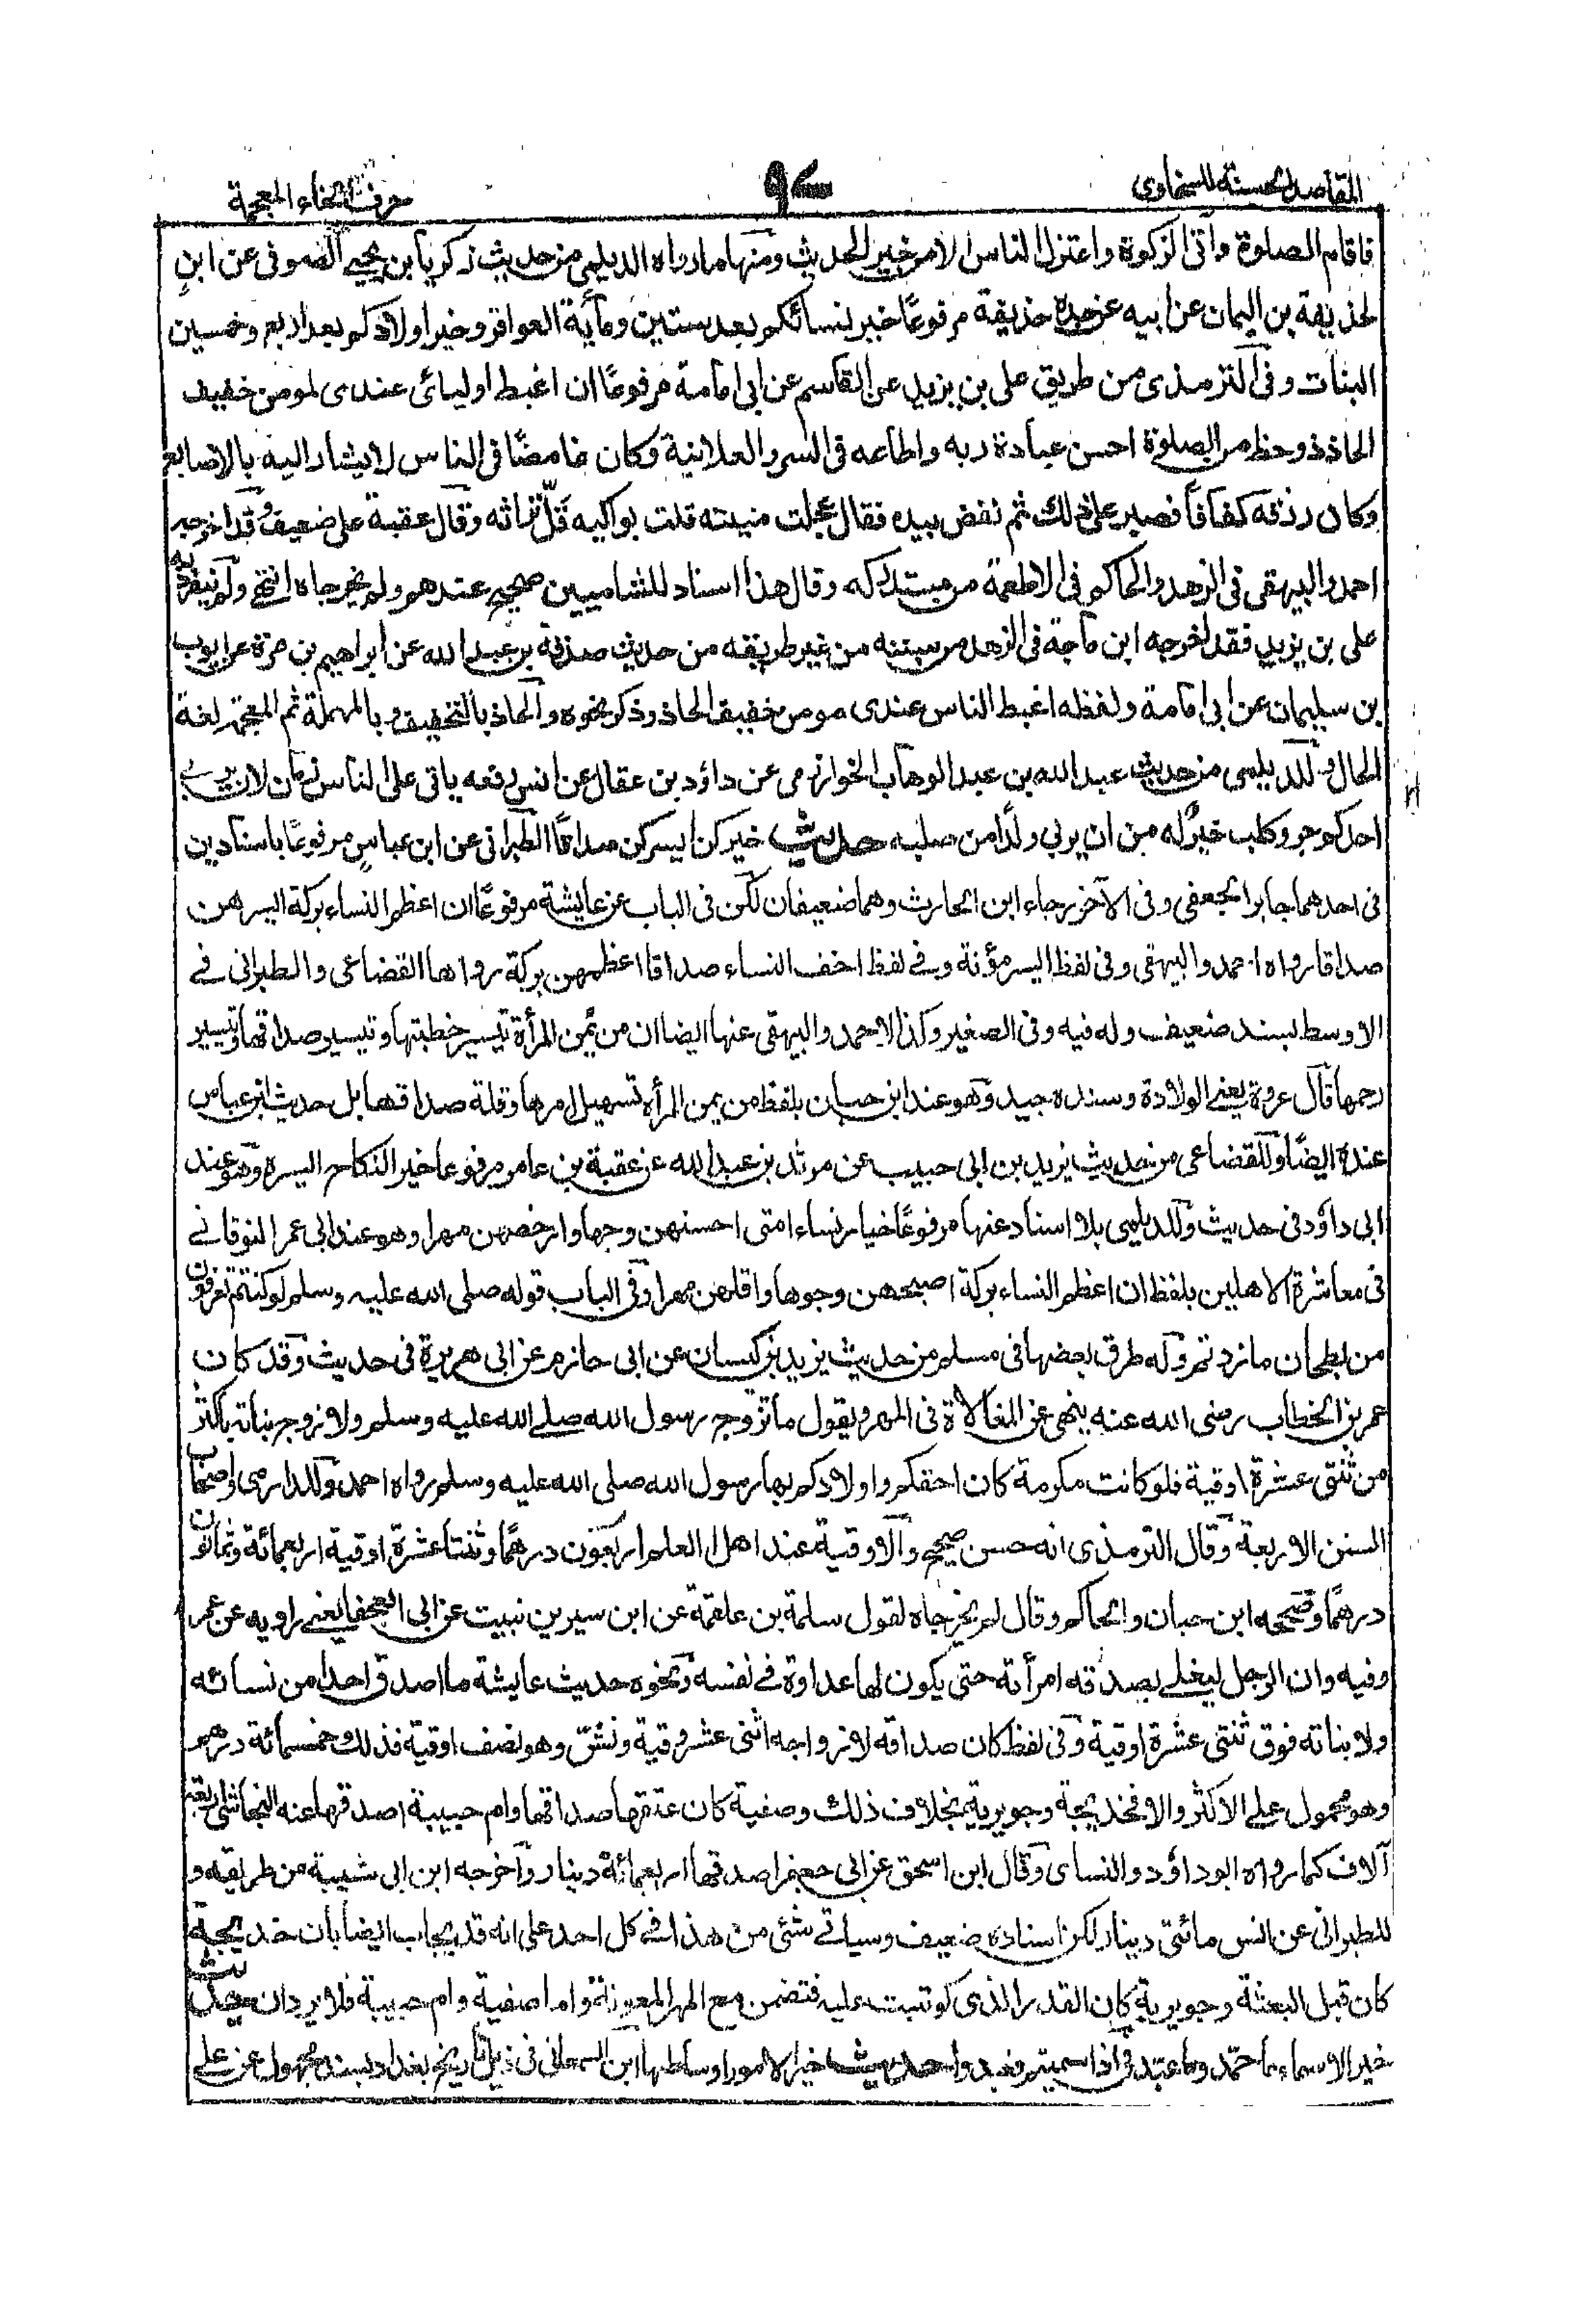 المقاصد الحسنة للسخاوى
٩٤
حرف الخاء المعجمة
فاقام الصلوة واتى الزكوة واعتزل الناس الامر خير الحديث ومنها ما رواه الديلمى من حديث زكريا بن يحيى الصوفى عن ابن
لحذيفة بن اليمان عن ابيه عن جده حذيفة مرفوعًا خير نسائكم بعد ستين ومأية العواقر وخير اولادكم بعد اربع وخمسين
البنات وفى الترمذى من طريق على بن يزيد عن القاسم عن ابى امامة مرفوعًا ان اغبط اوليائى عندى لمومن خفيف
الحاذ ذو حظ من الصلوة احسن عبادة ربه واطاعه فى السر والعلانية وكان غامضًا فى الناس لا يشار اليه بالاصابع
وكان رزقه كفافا فصبر على ذلك ثم نفض بيده فقال عجلت منيته قلت بواكيه قلّ تراثه وقال عقبة على ضعيف وقد اخرجه
احمد والبيهقى فى الزهد والحاكم فى الاطعمة من مستدركه وقال هذا اسناد للشاميين صحيح عندهم ولم يخرجاه انتهى ولم ينفرد به
على بن يزيد فقد اخرجه ابن ماجة فى الزهد من سننه من غير طريقه من حديث صدقة بن عبد الله عن ابراهيم بن مرة عن ايوب
بن سليمان عن ابى امامة ولفظه اغبط الناس عندى مومن خفيف الحاذ وذكر نحوه والحاذ بالتخفيف وبالمهملة ثم المعجمة لغة
الحال وللديلمى من حديث عبد الله بن عبد الوهاب الخوارزمى عن داؤد بن عقال عن انس رفعه ياتى على الناس زمان لان يربى
احدكم جرو كلب خيرٌ له من ان يربى ولدا من صلبه حديث خيركن ايسركن صداقًا الطبرانى عن ابن عباس مرفوعًا باسنادين
فى احدهما جابر الجعفى وفى الآخر رجاء ابن الحارث وهما ضعيفان لكن فى الباب عن عايشة مرفوعًا ان اعظم النساء بركة ايسرهن
صداقا رواه احمد والبيهقى وفى لفظ ايسر مؤنة وفى لفظ اخف النساء صداقا اعظمهن بركة رواها القضاعى والطبرانى فى
الاوسط بسند ضعيف وله فيه وفى الصغير وكذا لاحمد والبيهقى عنها ايضا ان من يُمن المرأة تيسير خطبتها وتيسير صداقها وتيسير
رحمها قال عروة يعنى الولادة وسنده جيد وهو عند ابن حبان بلفظ من يمن المرأة تسهيل امرها وقلة صداقها بل حديث ابن عباس
عنده ايضًا وللقضاعى من حديث يزيد بن ابى حبيب عن مرثد بن عبد الله عن عقبة بن عامر مرفوعا خير النكاح ايسره وهو عند
ابى داؤد فى حديث وللديلمى بلا اسناد عنها مرفوعًا خيار نساء امتى احسنهن وجها وارخصهن مهرا وهو عند ابى عمر النوقانى
فى معاشرة الاهلين بلفظ ان اعظم النساء بركة اصبحهن وجوها واقلهن مهرا وفى الباب قوله صلى الله عليه وسلم لو كنتم تغرفون
من بطحان ما زدتم وله طرق بعضها فى مسلم من حديث يزيد بن كيسان عن ابى حازم عن ابى هريرة فى حديث وقد كان
عمر بن الخطاب رضى الله عنه ينهى عن المغالاة فى المهر ويقول ما تزوج رسول الله صلى الله عليه وسلم ولا زوج بناته باكثر
من ثنتى عشرة اوقية فلو كانت مكرمة كان احقكم واولادكم بها رسول الله صلى الله عليه وسلم رواه احمد والدارمى واصحاب
السنن الاربعة وقال الترمذى انه حسن صحيح والاوقية عند اهل العلم اربعون درهمًا وثنتا عشرة اوقية اربعمائة وثمانون
درهمًا وصححه ابن حبان والحاكم وقال لم يخرجاه لقول سلمة بن علقمة عن ابن سيرين نبيت عن ابى العجفا يعنى راويه عن عمر
وفيه وان الرجل ليغلى بصدقه امرأته حتى يكون لها عداوة فى نفسه ونحوه حديث عايشة ما اصدق احدا من نسائه
ولا بناته فوق ثنتى عشرة اوقية وفى لفظ كان صداقه لازواجه اثنى عشر وقية ونشّ وهو نصف اوقية فذلك وخمسمائة درهم
وهو محمول على الاكثر والا فخديجة وجويرية بخلاف ذلك وصفية كان عتقها صداقها وام حبيبة اصدقها عنه النجاشى اربعة
آلاف كما رواه ابو داؤد والنساى وقال ابن اسحق عن ابى جعفر اصدقها اربعمائة دينار واخرجه ابن ابى شيبة من طريقه و
للطبرانى عن انس مائتى دينار لكن اسناده ضعيف وسياتى شئى من هذا فى كل احد على انه قد يجاب ايضا بان خديجة
كان قبل البعثة وجويرية كان القدر الذى كوتبت عليه فتضمن مع المهر المعونة واما صفية وام حبيبة فلا يردان حديث
خير الاسماء ما حمّد وما عبّد فى اذا سميتم فعبدوا حديث خير الامور اوساطها ابن السمعانى فى ذيل تاريخ بغداد بسند مجهول عن على